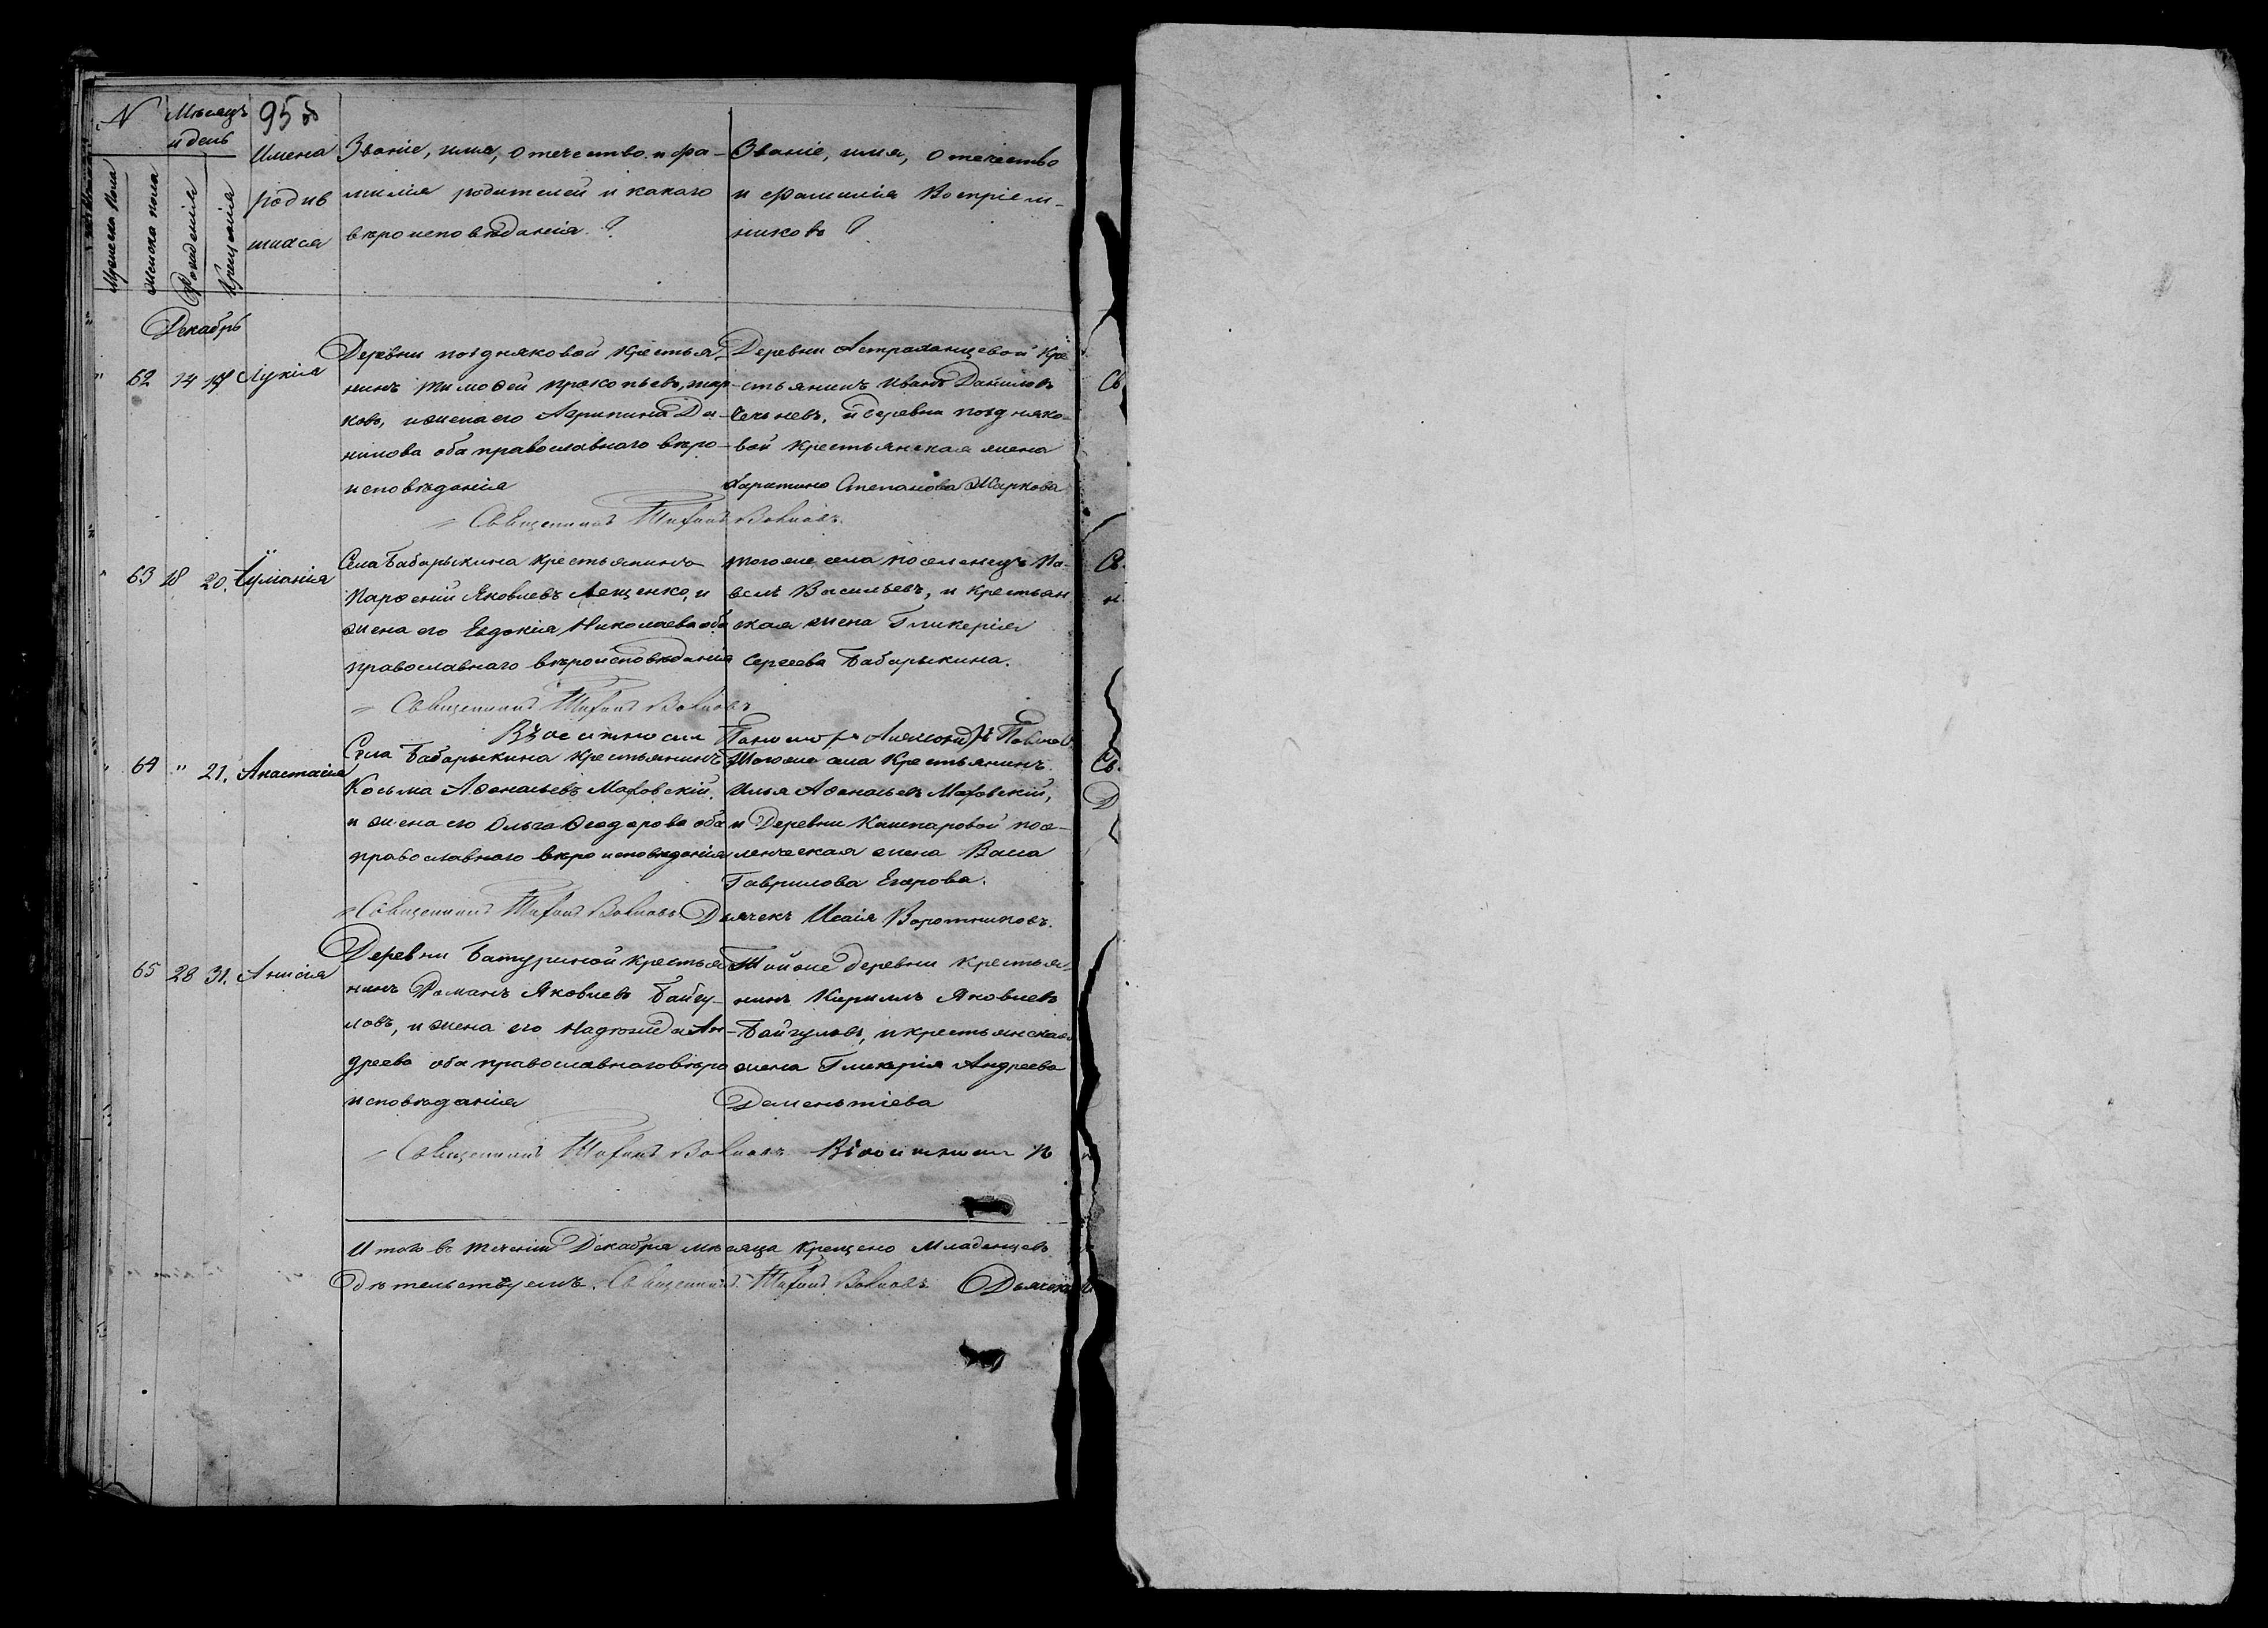 N
Мѣсяцъ
и день
95 об
Мужеска пола
Женска пола
Рожденія
Крещенія
Имена
родив
шихся
Званіе, имя, отечество и фа-
милія родителей и какаго
вѣроисповѣданія?
Званіе, имя, отечество
и фамилія Воспріем-
никовъ?
Декабрь
" 62 14 Лукія
Деревни поздняковой крестья-
нинъ тимоѳей прокопьевъ, жар-
ковъ, и жена его Агрипина Да-
нилова оба православнаго вѣро-
исповѣданія
Деревни Астраханцевой Кре
стьянинъ Иванъ Даниловъ
и деревни поздняко-
вой крестьянская жена
Степанова Жаркова
Священникъ Вовковъ.
" 63 18 20. Іуліанія
Села Бабарыкина крестьянинъ
Парѳеній Яковлевъ Лещенко, и
жена его Евдокія Николаева оба
православнаго вѣроисповѣданія
тогоже села поселенецъ Па-
велъ Васильевъ, и крестьян
ская жена Гликерія
Сергеева Бабарыкина.
Священникъ Вовковъ
Въ должности Пономаря
" 64 " 21. Анастасія
Села Бабарыкина крестьянинъ
Косьма Аѳанасьевъ Маховскій,
и жена его Ольга Ѳеодорова оба
православнаго вѣроисповѣданія
Тогоже села Крестьянинъ
Илья Аѳанасьевъ Маховскій,
и Деревни Кашкаровой посе-
ленческая жена Васса
Гаврилова Егорова.
Священникъ Вовковъ Дьячекъ Исаія Воротниковъ.
65 28 31. Анисія
Деревни Батуриной крестья
нинъ Романъ Яковлевъ Байгу-
ловъ, и жена его Надежда Ан-
дреева оба православнаго вѣро
исповѣданія
Тойже деревни крестья-
нинъ Кириллъ Яковлевъ
Байгуловъ, и крестьянская
жена Гликерія Андреева
Дементіева
Священникъ Вовковъ Въ должности п
Итого въ теченіи Декабря мѣсяца крещено Младенцевъ
дѣтельствуемъ. Священникъ Вовковъ Дьячекъ И